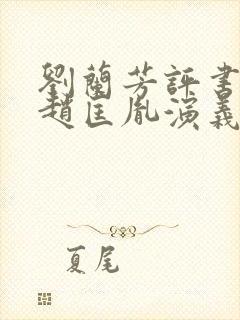 劉蘭芳評書
趙匡胤演義
夏尾